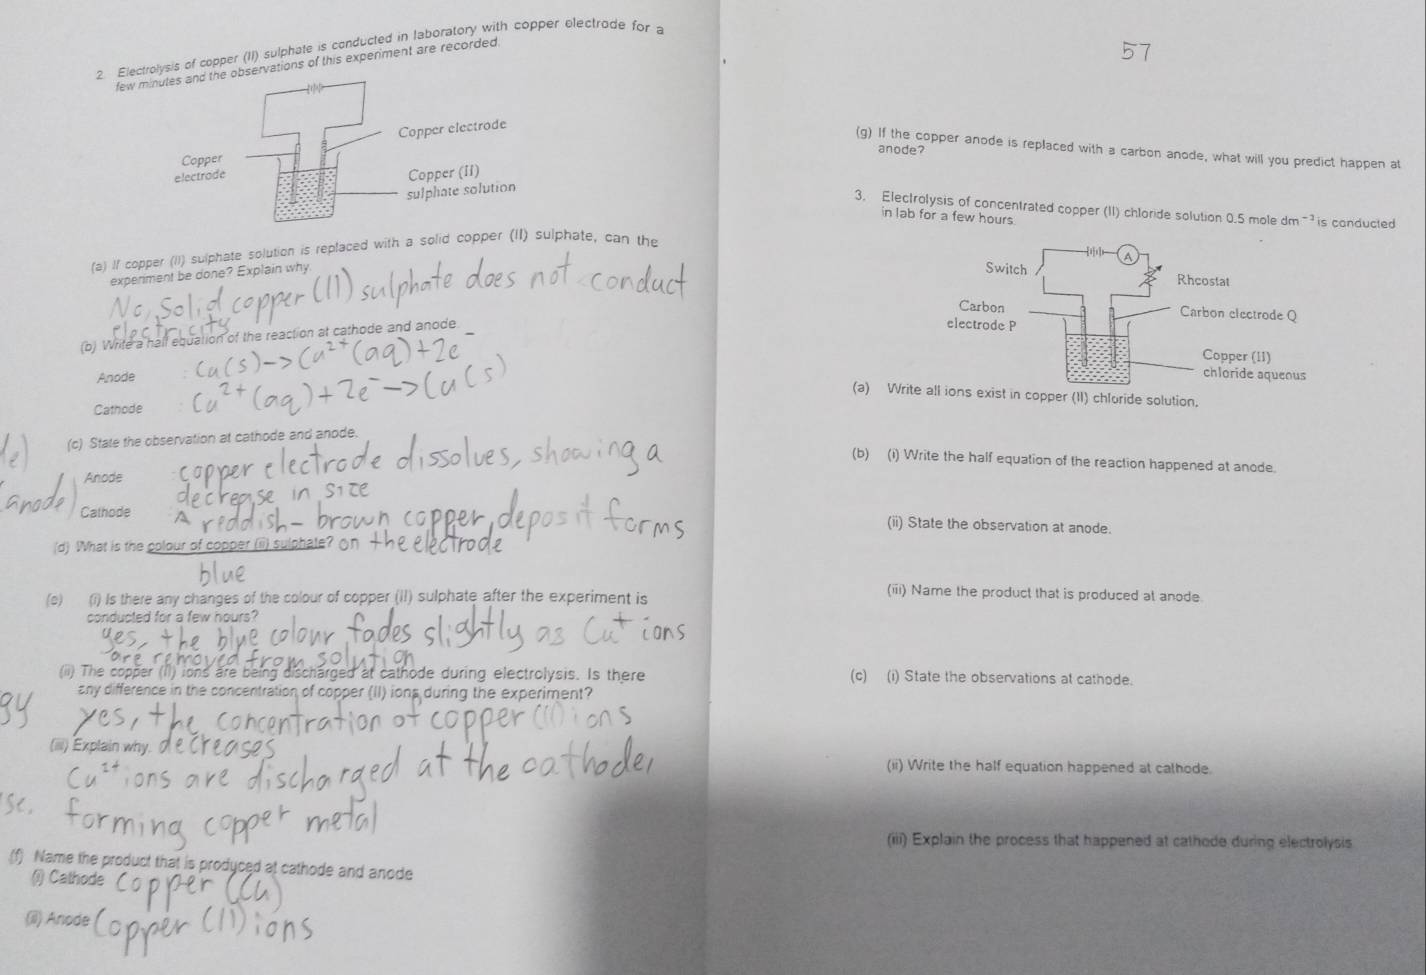 2. Electrolysis of copper (II) sulphate is conducted in laboratory with copper electrode for a
few minutes and the observations of this experiment are recorded.
Copper electrode
Copper
electrode
Copper (II)
sulphate solution
(a) If copper (II) sulphate solution is replaced with a solid copper (II) sulphate, can the
experiment be done? Explain why.
No, Solid copper (II) sulphate does not conduct
electricity
(b) Write a half equation of the reaction at cathode and anode.
Anode Cu(s) -> Cu²⁺(aq) + 2e⁻
Cathode Cu²⁺(aq) + 2e⁻ -> Cu(s)
(c) State the observation at cathode and anode.
Anode copper electrode dissolves, showing a
decrease in size
anode)
Cathode A reddish-brown copper deposit forms
on the electrode
(d) What is the colour of copper (ii) sulphate?
blue
(e) (i) Is there any changes of the colour of copper (II) sulphate after the experiment is
conducted for a few hours?
yes, the blue colour fades slightly as Cu⁺ ions
are removed from solution
(ii) The copper (II) ions are being discharged at cathode during electrolysis. Is there
any difference in the concentration of copper (II) ions during the experiment?
gy
yes, the concentration of copper (II) ions
decreases
(iii) Explain why.
Cu²⁺ ions are discharged at the cathode,
se.
forming copper metal
(f) Name the product that is produced at cathode and anode
(i) Cathode Copper (Cu)
(ii) Anode Copper (II) ions
57
(g) If the copper anode is replaced with a carbon anode, what will you predict happen at
anode?
3. Electrolysis of concentrated copper (II) chloride solution 0.5 mole dm⁻³ is conducted
in lab for a few hours.
A
Switch
Rheostat
Carbon
electrode P
Carbon electrode Q
Copper (II)
chloride aqueous
(a) Write all ions exist in copper (II) chloride solution.
(b) (i) Write the half equation of the reaction happened at anode.
(ii) State the observation at anode.
(iii) Name the product that is produced at anode.
(c) (i) State the observations at cathode.
(ii) Write the half equation happened at cathode.
(iii) Explain the process that happened at cathode during electrolysis